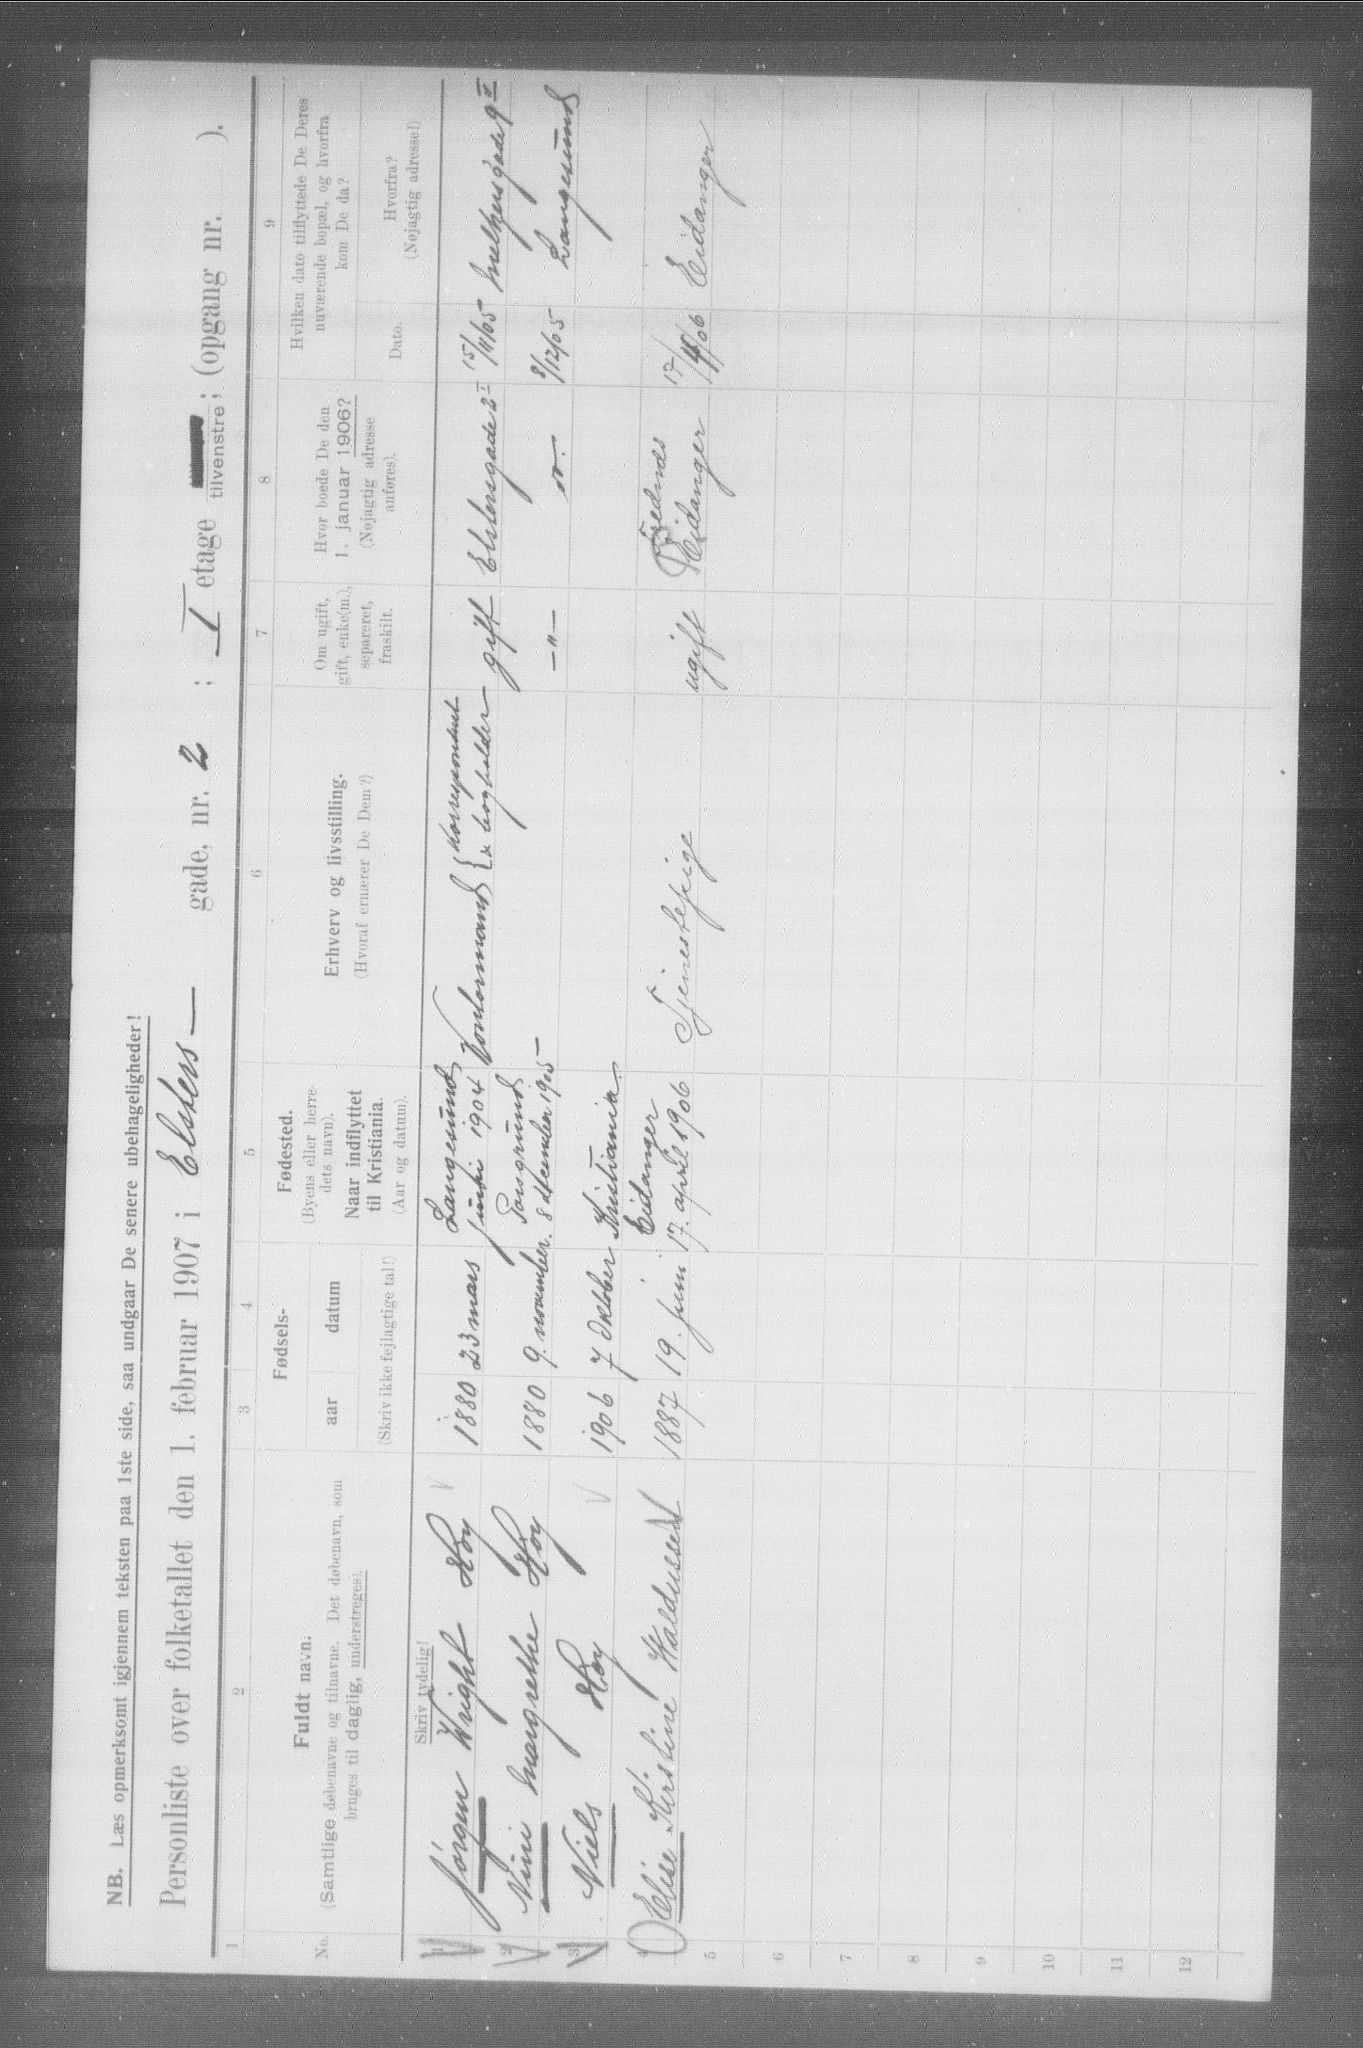 NB. Læs opmerksomt igjennem teksten paa 1ste side, saa undgaar De senere ubehageligheder!
Personliste over folketallet den 1. februar 1907 i Elsters— gade, nr. 2 ; I etage tilvenstre; (opgang nr. ).
1 2 3 4 5 6 7 8 9
No.
Fuldt navn.
(Samtlige døbenavne og tilnavne. Det døbenavn, som
bruges til daglig, understreges).
Fødsels-
aar datum
(Skriv ikke fejlagtige tal!)
Fødested.
(Byens eller herre-
dets navn).
Naar indflyttet
til Kristiania.
(Aar og datum).
Erhverv og livsstilling.
(Hvoraf ernærer De Dem?)
Om ugift,
gift, enke(m.),
separeret,
fraskilt.
Hvor boede De den
1. januar 1906?
(Nøjagtig adresse
anføres).
Hvilken dato tilflyttede De Deres
nuværende bopæl, og hvorfra
kom De da?
Dato.
Hvorfra?
(Nøjagtig adresse!)
Skriv tydelig!
1 Jørgen Wright Høy 1880 23 mars Langesund
juni 1904 Kontormand { Korrespondent
& bogholder gift Elstersgade 2 I 15/11/05 9 II
2 Nini Margrethe Høy 1880 9. november. Porsgrund
8 december 1905 —"— 8/12/05 Langesund
3 Niels Høy 1906 7 Oktober Kristiania.
4 Elise Kirstine Haldussen 1887 19. Juni Eidanger
17. april 1906 Tjenestepige ugift Eidanger 17/4/06 Eidanger
5
6
7
8
9
10
11
12